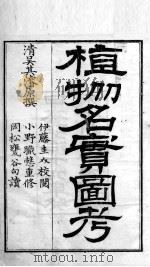 植物名實圖考
清吳其濬原撰
伊藤圭介校閱
小野職愨重修
岡松甕谷句讀
www.mtoou.info